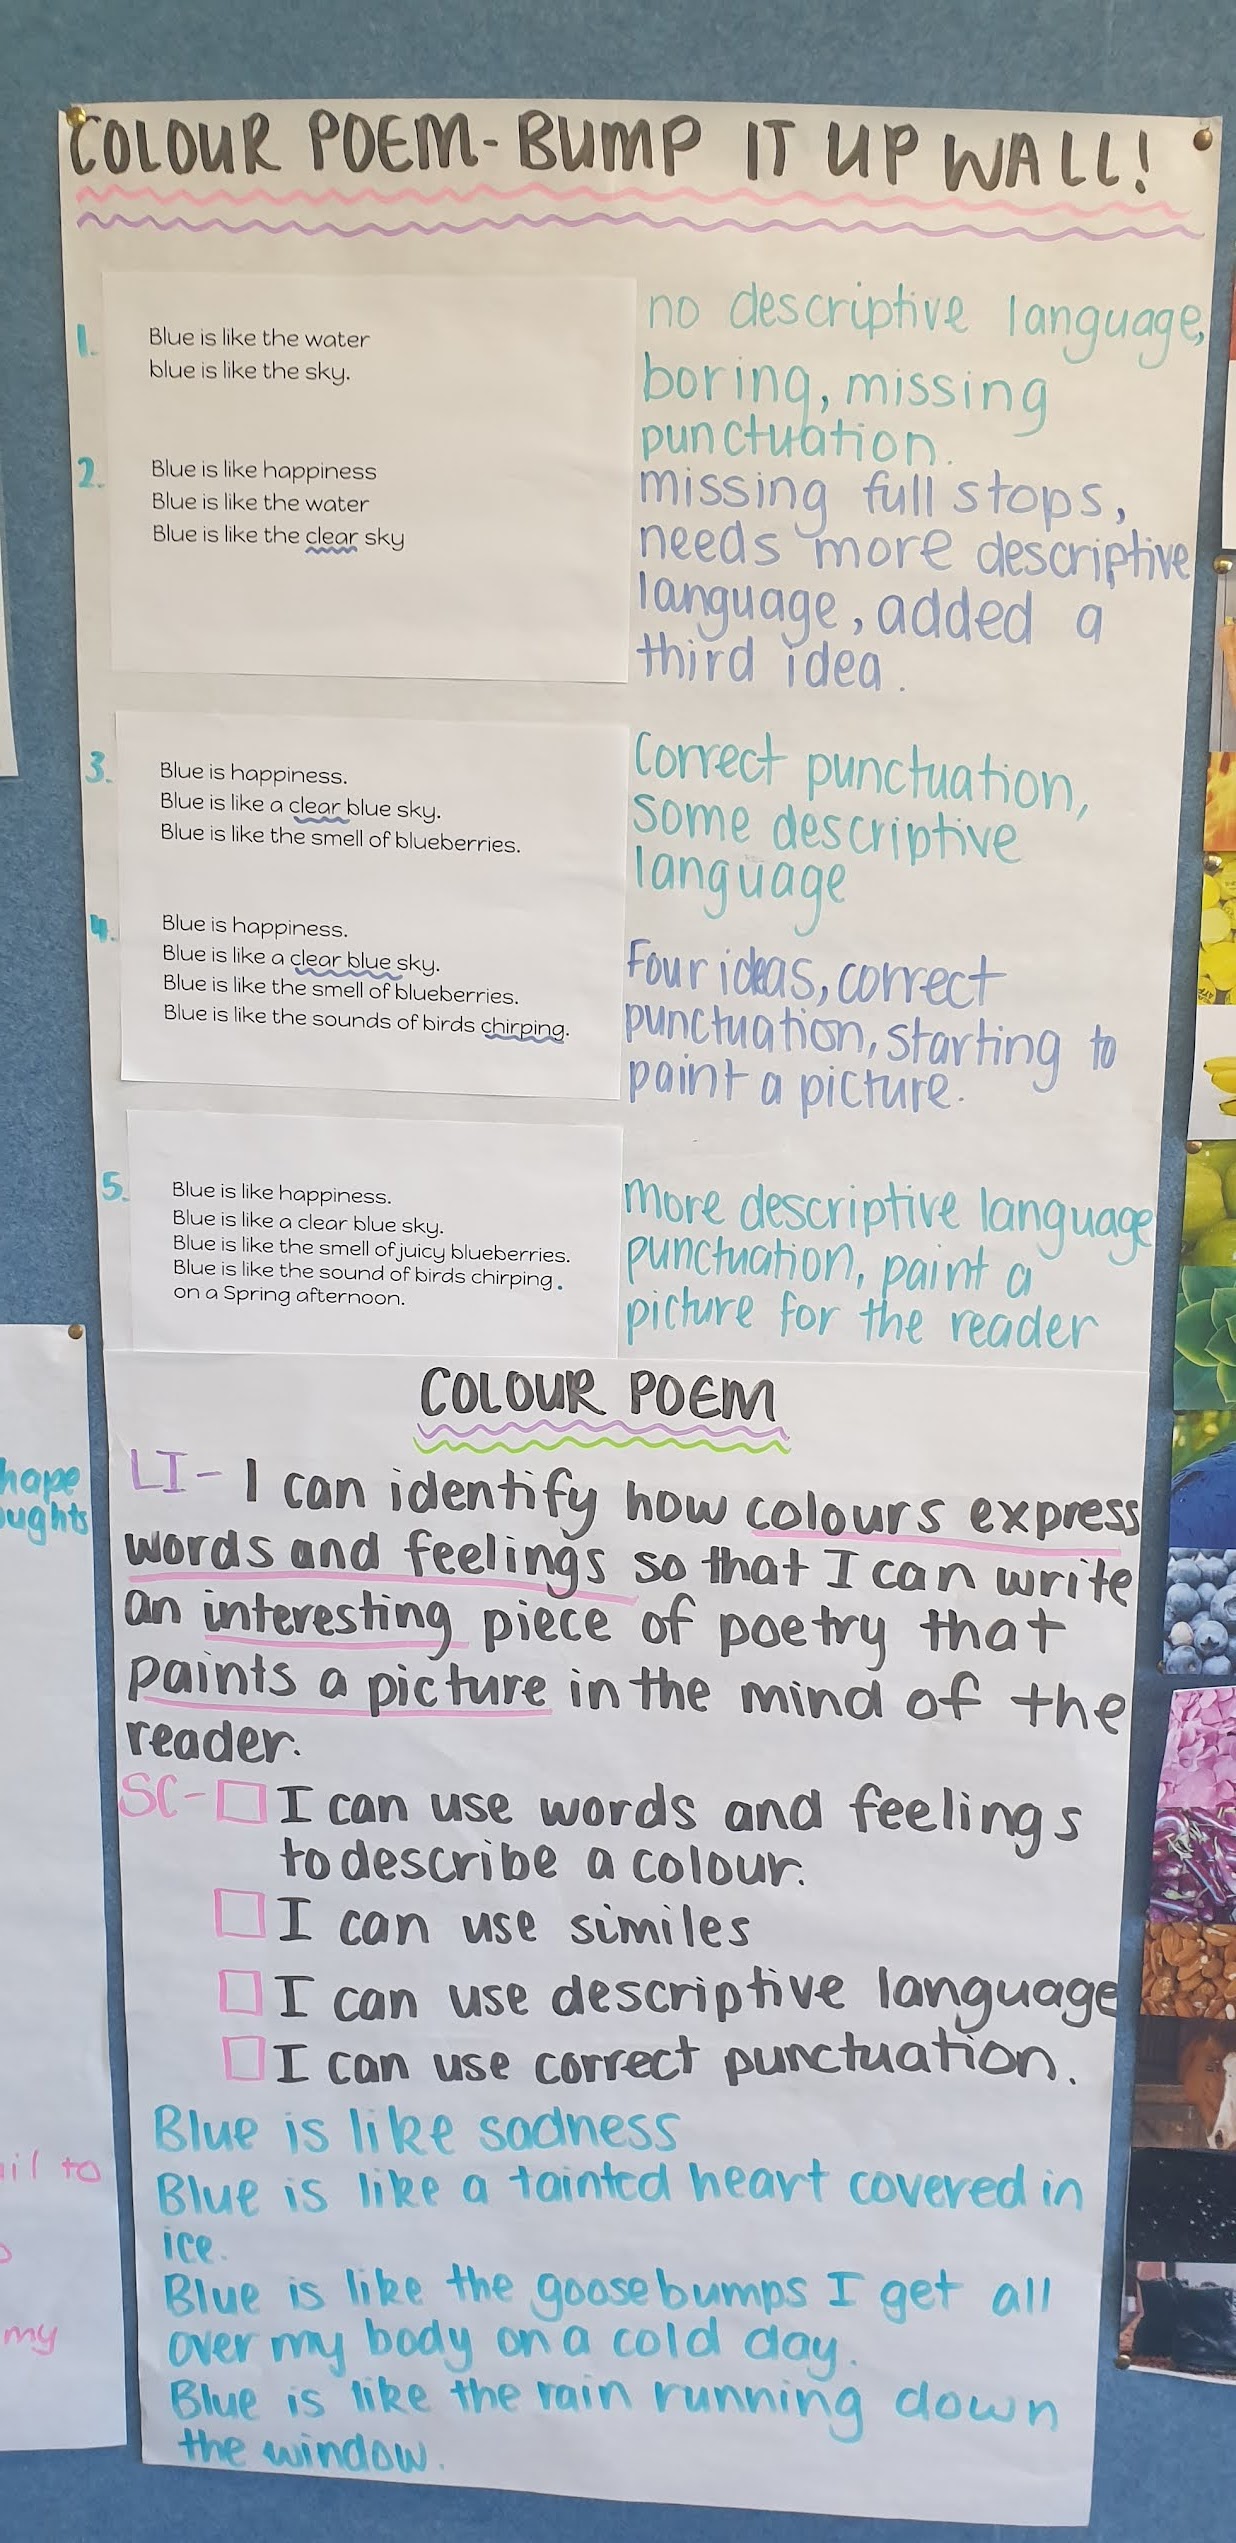 COLOUR POEM-BUMP IT UP WALL!
1.
Blue is like the water
blue is like the sky.
no descriptive language,
boring, missing
punctuation.
2.
Blue is like happiness
Blue is like the water
Blue is like the clear sky
missing full stops,
needs more descriptive
language, added a
third idea.
3.
Blue is happiness.
Blue is like a clear blue sky.
Blue is like the smell of blueberries.
Correct punctuation,
some descriptive
language
4.
Blue is happiness.
Blue is like a clear blue sky.
Blue is like the smell of blueberries.
Blue is like the sounds of birds chirping.
Four ideas, correct
punctuation, starting to
paint a picture.
5.
Blue is like happiness.
Blue is like a clear blue sky.
Blue is like the smell of juicy blueberries.
Blue is like the sound of birds chirping.
on a Spring afternoon.
more descriptive language
punctuation, paint a
picture for the reader
COLOUR POEM
LI- I can identify how colours express
words and feelings so that I can write
an interesting piece of poetry that
paints a picture in the mind of the
reader.
SC- I can use words and feelings
to describe a colour.
I can use similes
I can use descriptive language
I can use correct punctuation.
Blue is like sadness
Blue is like a tainted heart covered in
ice.
Blue is like the goosebumps I get all
over my body on a cold day.
Blue is like the rain running down
the window.
to
my